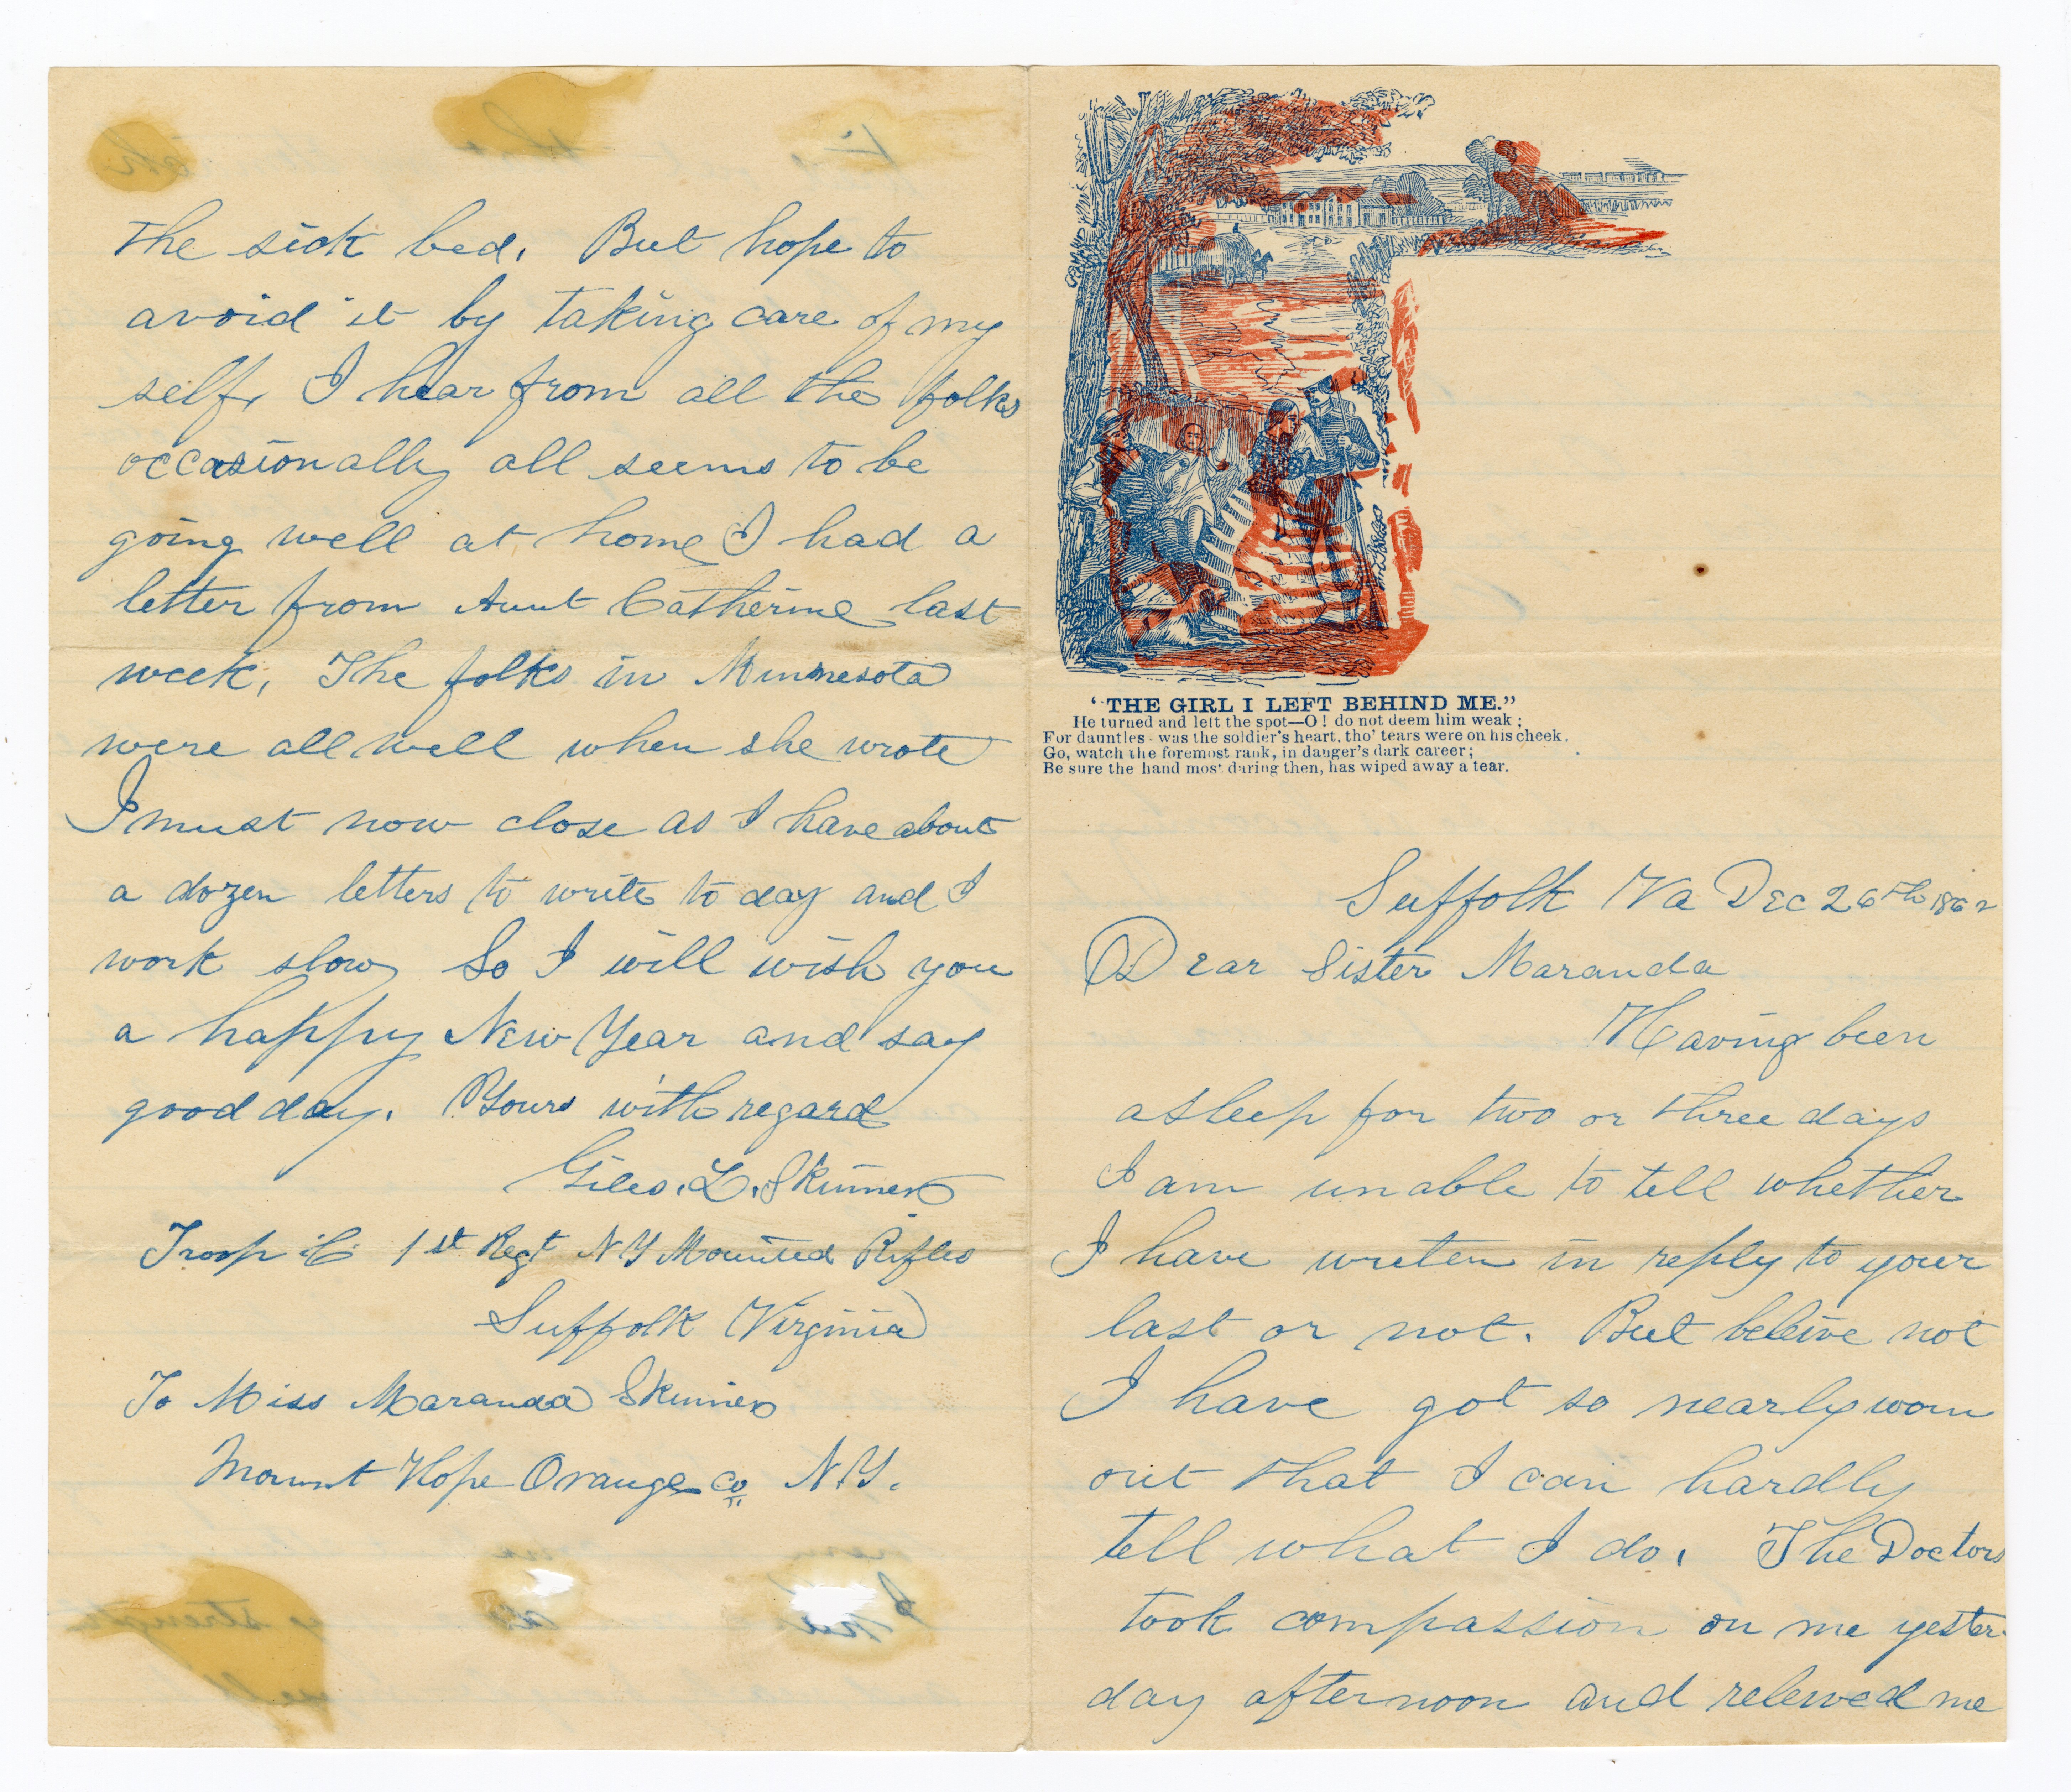 "THE GIRL I LEFT BEHIND ME."
He turned and left the spot—O! do not deem him weak;
For dauntles- was the soldier's heart, tho' tears were on his cheek.
Go, watch the foremost rank, in danger's dark career;
Be sure the hand most daring then, has wiped away a tear.
Suffolk Va Dec 26th 1862
Dear Sister Maranda
Having been
asleep for two or three days
I am unable to tell whether
I have writen in reply to your
last or not. But beleive not
I have got so nearly worn
out that I can hardly
tell what I do. The Doctors
took compassion on me yester-
day afternoon and releived me
the sick bed. But hope to
avoid it by taking care of my
self, I hear from all the folks
occasionally all seems to be
going well at home I had a
letter from Aunt Catherine last
week, The folks in Minnesota
were all well when she wrote
I must now close as I have about
a dozen letters to write to day and I
work slow So I will wish you
a happy New Year and say
good day. Yours with regard
Giles. L. Skinner
Troop C 1st Regt N Y Mounted Rifles
Suffolk Virginia
To Miss Maranda Skinner
Mount Hope Orange Co N.Y.